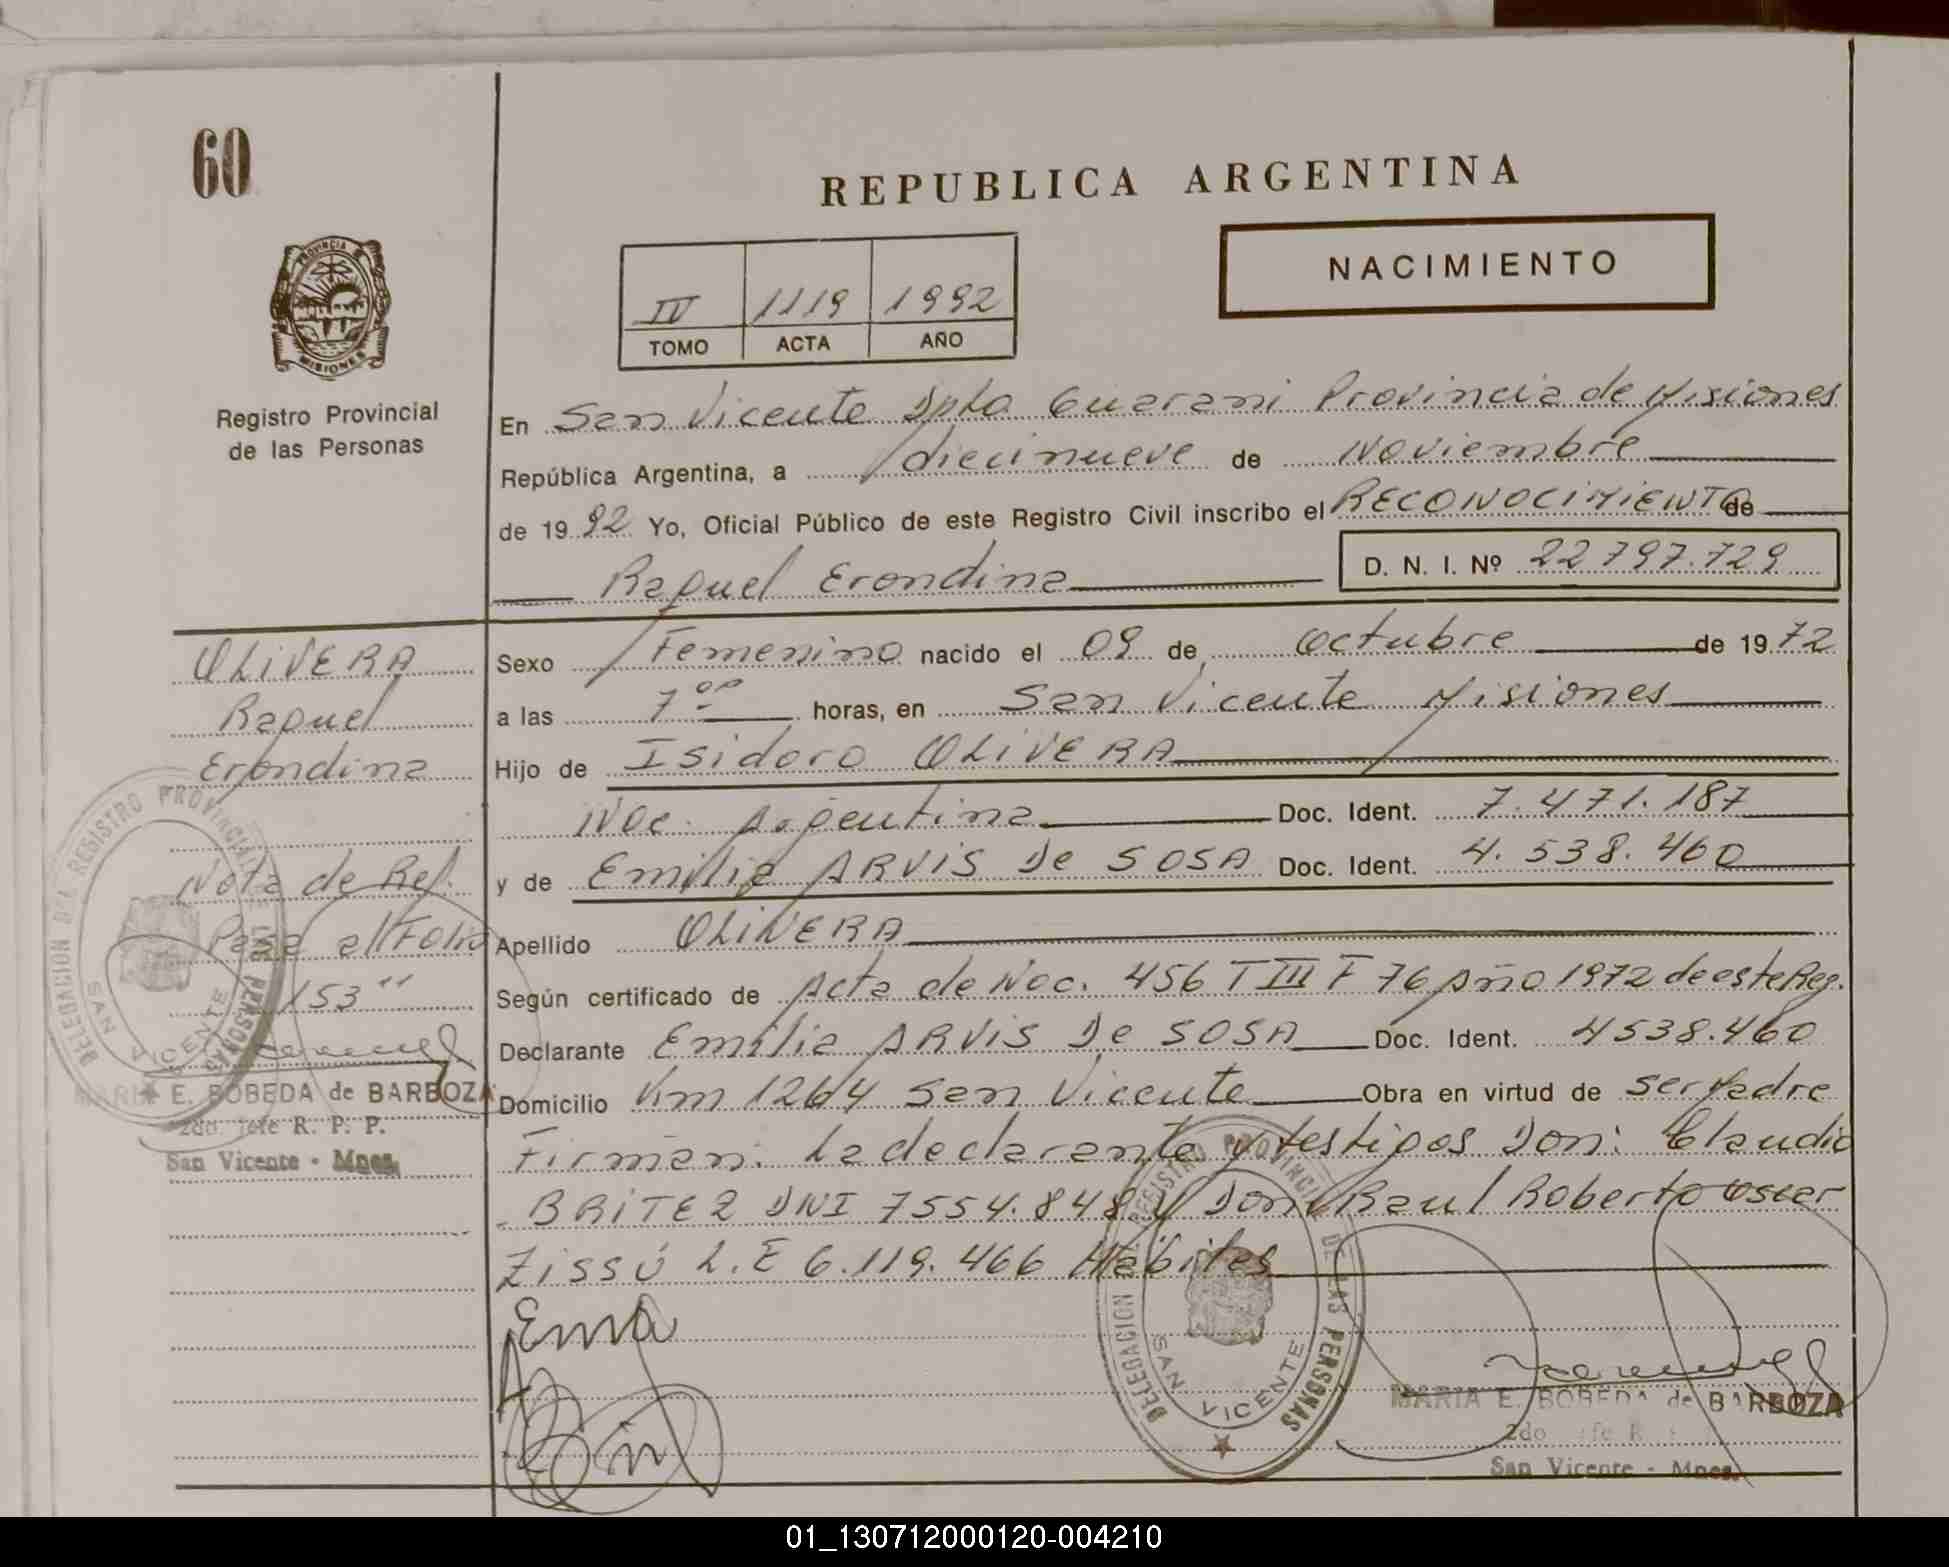 60
REPUBLICA ARGENTINA
NACIMIENTO
IV 1119 1992
TOMO ACTA AÑO
PROVINCIA
MISIONES
Registro Provincial
de las Personas
En San Vicente Dpto Guarani Provincia de Misiones
República Argentina, a diecinueve de Noviembre
de 1992 Yo, Oficial Público de este Registro Civil inscribo el RECONOCIMIENTO de
Raquel Erondina
D. N. I. Nº 22797.729
OLIVERA
Raquel
Erondina
Nota de Ref.
Pasa al Folio
153"
MARIA E. BOBEDA de BARBOZA
2do. Jefe R. P. P.
San Vicente - Mnes.
DELEGACION DEL REGISTRO PROVINCIAL DE LAS PERSONAS
SAN VICENTE
Sexo Femenino nacido el 09 de Octubre de 1972
a las 7 00 horas, en San Vicente Misiones
Hijo de Isidoro OLIVERA
Nac. Argentina Doc. Ident. 7.471.187
y de Emilia ARVIS De SOSA Doc. Ident. 4.538.460
Apellido OLIVERA
Según certificado de Acta de Nac. 456 T III F 76 Año 1972 de este Reg.
Declarante Emilia ARVIS De SOSA Doc. Ident. 4538.460
Domicilio Km 1264 San Vicente Obra en virtud de ser Madre
Firman: La declarante y testigos Don: Claudio
BRITEZ DNI 7554.848 y Don Raul Roberto Oscar
Zissú L.E 6.119.466 Hábiles
Ema
DELEGACION DEL REGISTRO PROVINCIAL DE LAS PERSONAS
SAN VICENTE
MARIA E. BOBEDA de BARBOZA
2do Jefe R
San Vicente - Mnes.
01_130712000120-004210